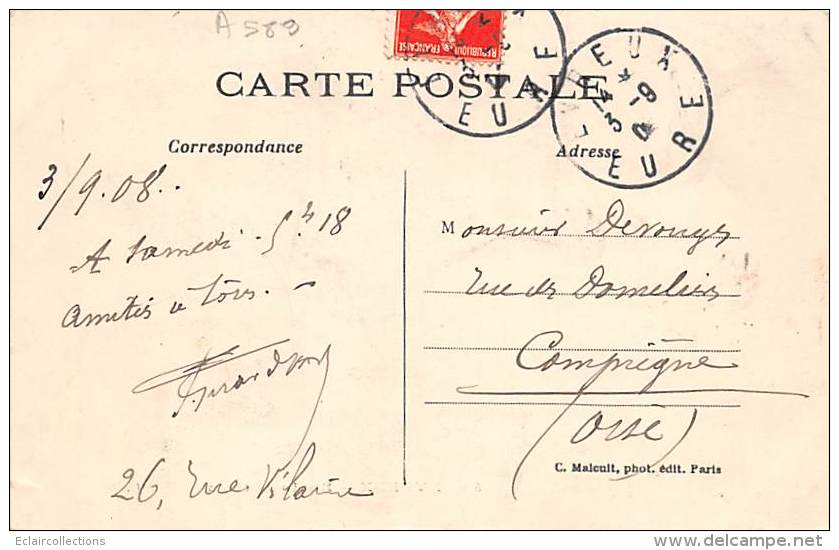 A 583
REPUBLIQUE FRANÇAISE
EURE
EVREUX
3 - 9
EURE
CARTE POSTALE
Correspondance
Adresse
3/9.08..
A Samedi - 5h 18
amitiés à tous. -
26, Rue Vilaine
Monsieur Devouges
Rue des Domeliers
Compiègne
(Oise)
C. Malcuit, phot. édit. Paris
Eclaircollections
delcampe.net